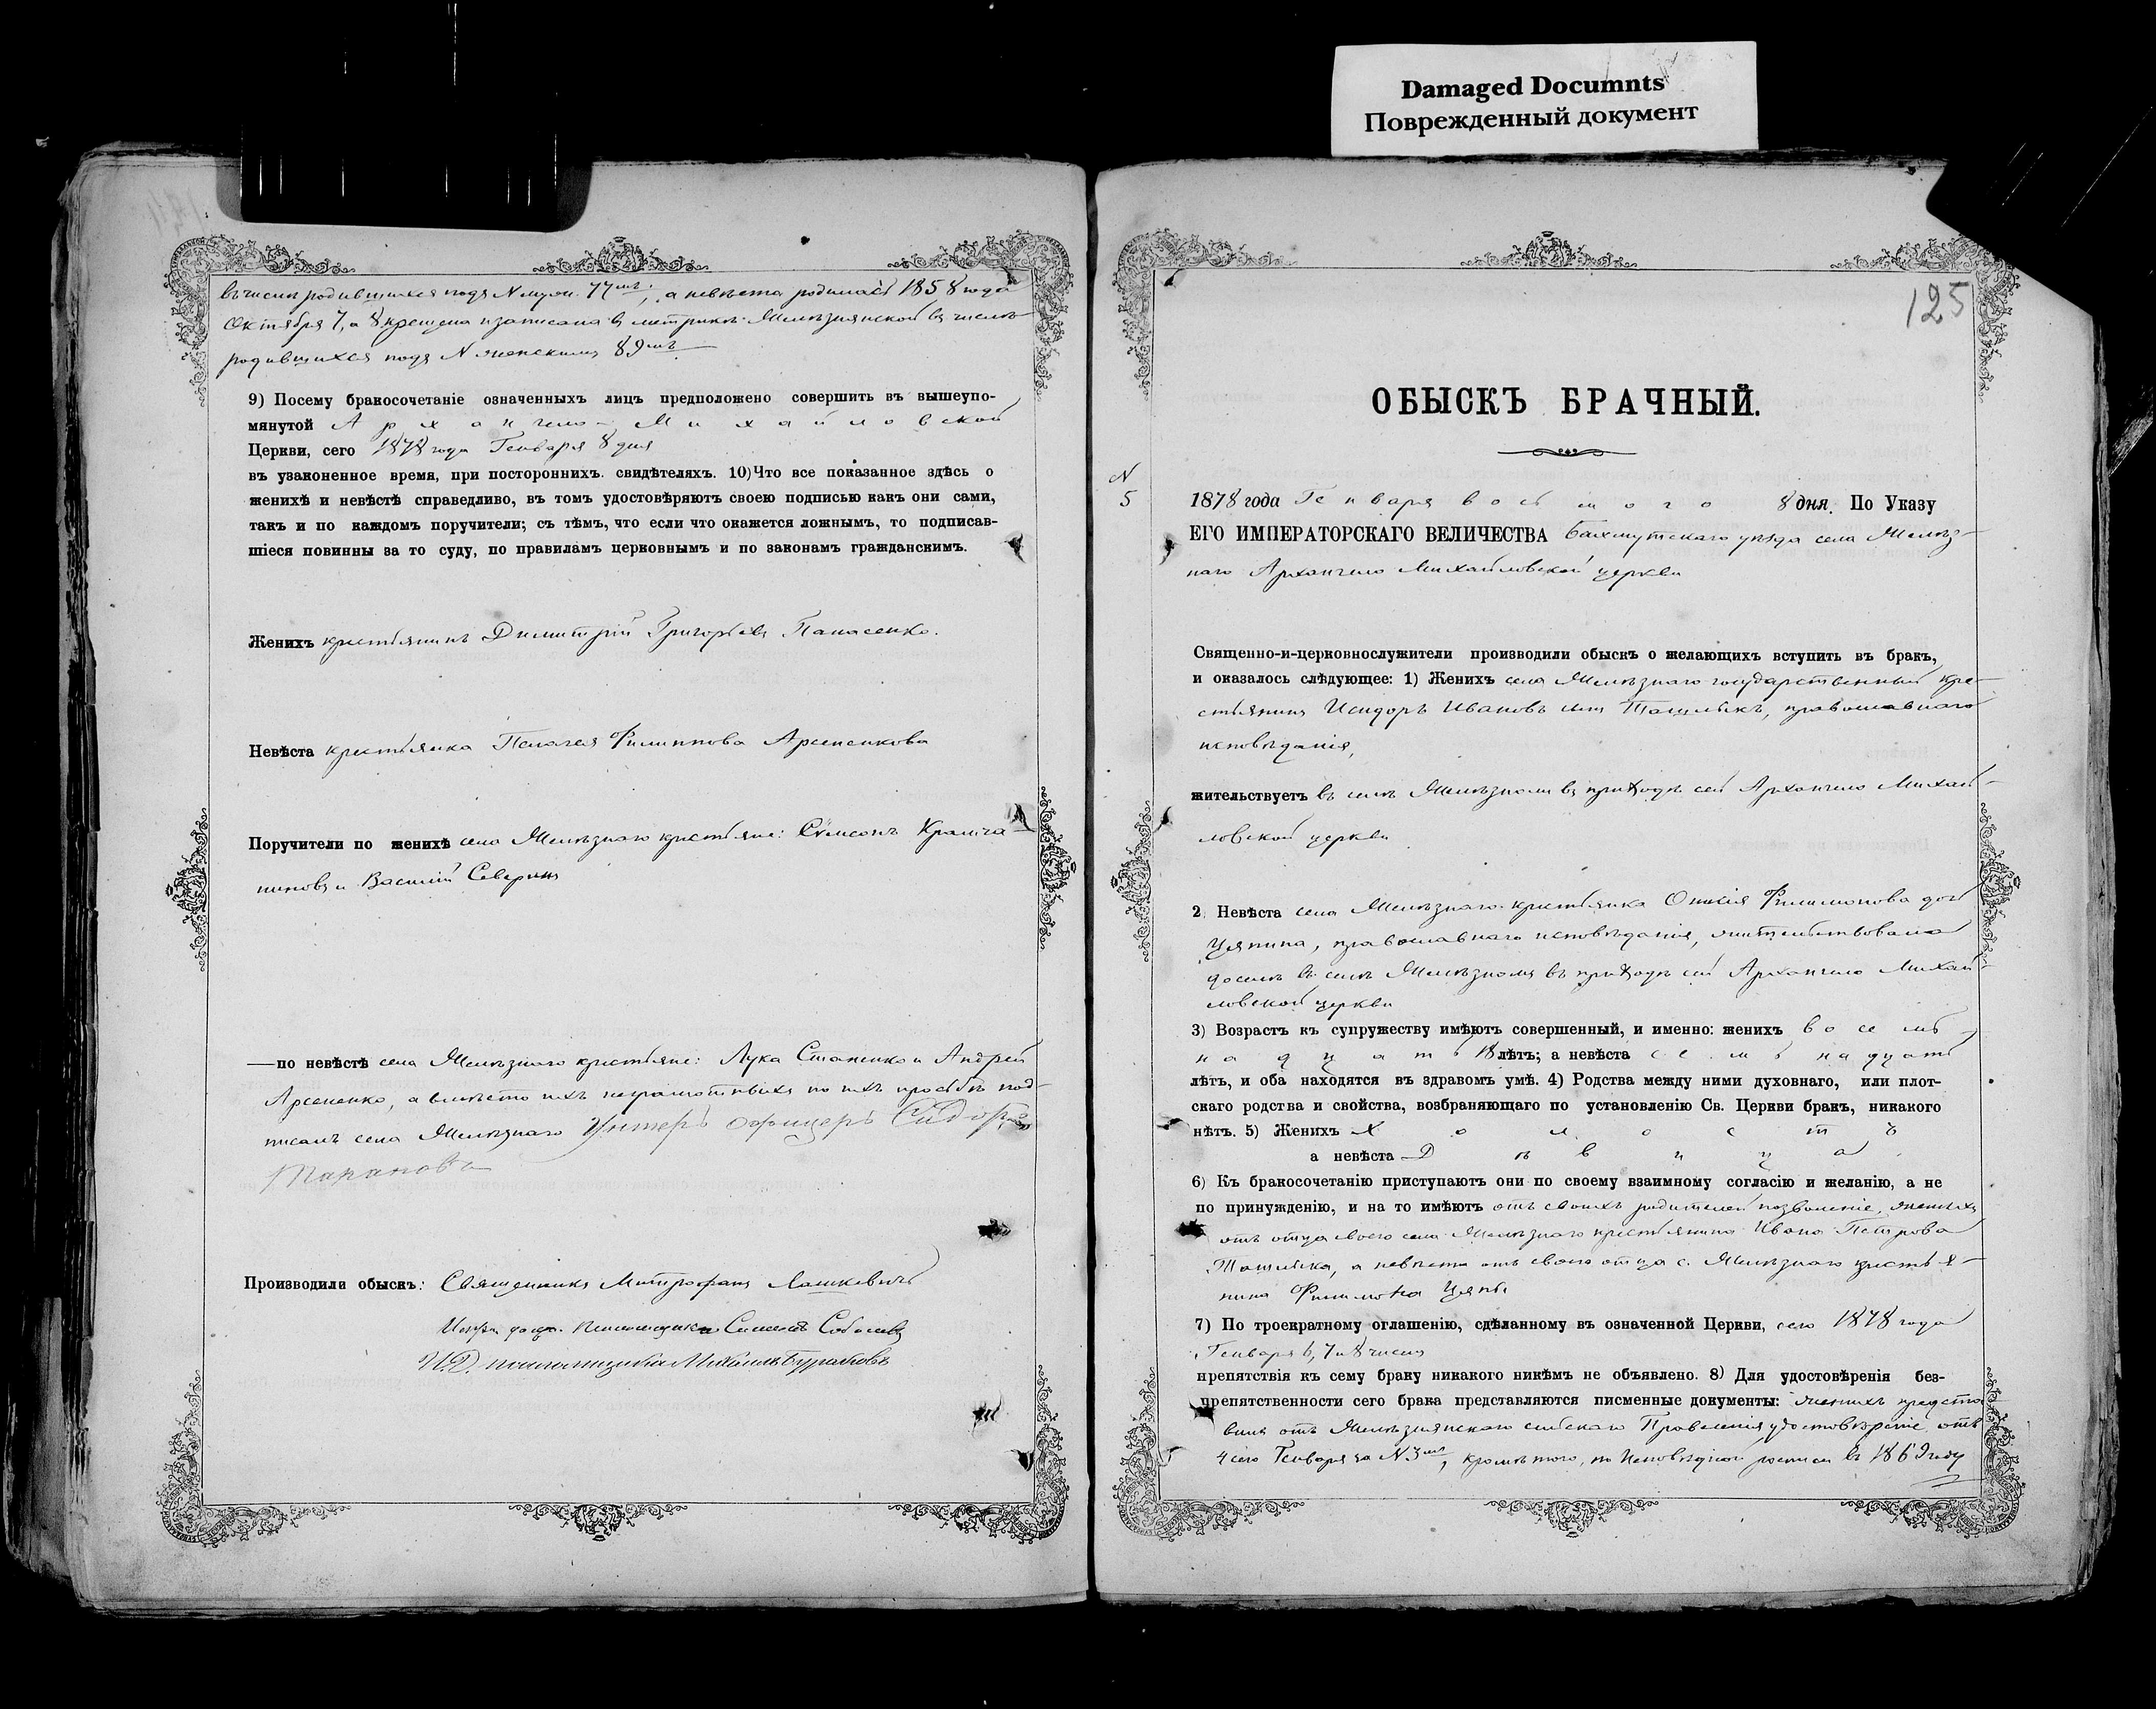 Damaged Documnts
Поврежденный документ
въ числѣ родившихся подъ N муж. 77мъ, а невѣста родилась 1858 года
Октября 7, а 8 крещена и записана въ метрикѣ Желѣзнянской въ числѣ
родившихся подъ N женскимъ 89мъ
9) Посему бракосочетаніе означенныхъ лицъ предположено совершить въ вышеупо-
мянутой Архангело-Михайловской
Церкви, сего 1878 года Генваря 8 дня
въ узаконенное время, при постороннихъ. свидѣтеляхъ. 10)Что все показанное здѣсь о
женихѣ и невѣстѣ справедливо, въ томъ удостовѣряютъ своею подписью какъ они сами,
такъ и по каждомъ поручители; съ тѣмъ, что если что окажется ложнымъ, то подписав-
шіеся повинны за то суду, по правиламъ церковнымъ и по законамъ гражданскимъ.
Женихъ крестьянинъ Димитрій Григорьевъ Панасенко.
Невѣста крестьянка Пелагея Филиппова Арсененкова
Поручители по женихѣ села Желѣзнаго крестьяне: Сѵмеонъ
и Василій Северинъ
—по невѣстѣ села Желѣзнаго крестьяне: Лука Стапенко и Андрей
Арсененко, а вмѣсто ихъ неграмотныхъ по ихъ просьбѣ под-
писалъ села Желѣзнаго Унтеръ офицеръ Сидоръ
Тарановъ
Производили обыскъ: Священникъ Митрофанъ Лашкевичъ
Псаломщикъ Симеонъ Соболевъ
И.Д. псаломщика Михаилъ Бураковъ
125
ОБЫСКЪ БРАЧНЫЙ.
N
5
1878 года Генваря восьмого 8 дня. По Указу
ЕГО ИМПЕРАТОРСКАГО ВЕЛИЧЕСТВА Бахмутскаго уѣзда села Желѣз-
наго Архангело Михайловской церкви
Священно-и-церковнослужители производили обыскъ о желающихъ вступить въ бракъ,
и оказалось слѣдующее: 1) Женихъ села Желѣзнаго государственный кре-
стьянинъ Исидоръ Ивановъ сынъ Ташлыкъ, православнаго
исповѣданія,
жительствуетъ въ селѣ Желѣзномъ въ приходѣ сей Архангело Михай-
ловской церкви
2 Невѣста села Желѣзнаго крестьянка Онисія Филимонова дочь
Цяпина, православнаго исповѣданія, жительствовала
доселѣ въ селѣ Желѣзномъ въ приходѣ сей Архангело Михай-
ловской церкви
3) Возрастъ къ супружеству имѣютъ совершенный, и именно: женихъ восемь-
надцать 18 лѣтъ; а невѣста семьнадцать
лѣтъ, и оба находятся въ здравомъ умѣ. 4) Родства между ними духовнаго, или плот-
скаго родства и свойства, возбраняющаго по установленію Св. Церкви бракъ, никакого
нѣтъ. 5) Женихъ Холостъ
а невѣста Дѣвица
6) Къ бракосочетанію приступаютъ они по своему взаимному согласію и желанію, а не
по принужденію, и на то имѣютъ отъ своихъ родителей позволеніе, женихъ
отъ отца своего села Желѣзнаго крестьянина Ивана Петрова
Ташлыка, а невѣста отъ своего отца с. Желѣзнаго крестья-
нина Филимона Цяпы
7) По троекратному оглашенію, сдѣланному въ означенной Церкви, сего 1878 года
Генваря 6, 7 и 8 числъ
препятствія къ сему браку никакого никѣмъ не объявлено. 8) Для удостовѣренія без-
препятственности сего брака представляются писменные документы: женихъ предста
вилъ отъ Желѣзнянскаго сельскаго Правленія удостовѣреніе отъ
4 сего Генваря за N 3мъ, кромѣ того, по Исповѣдной росписи въ 1869 году